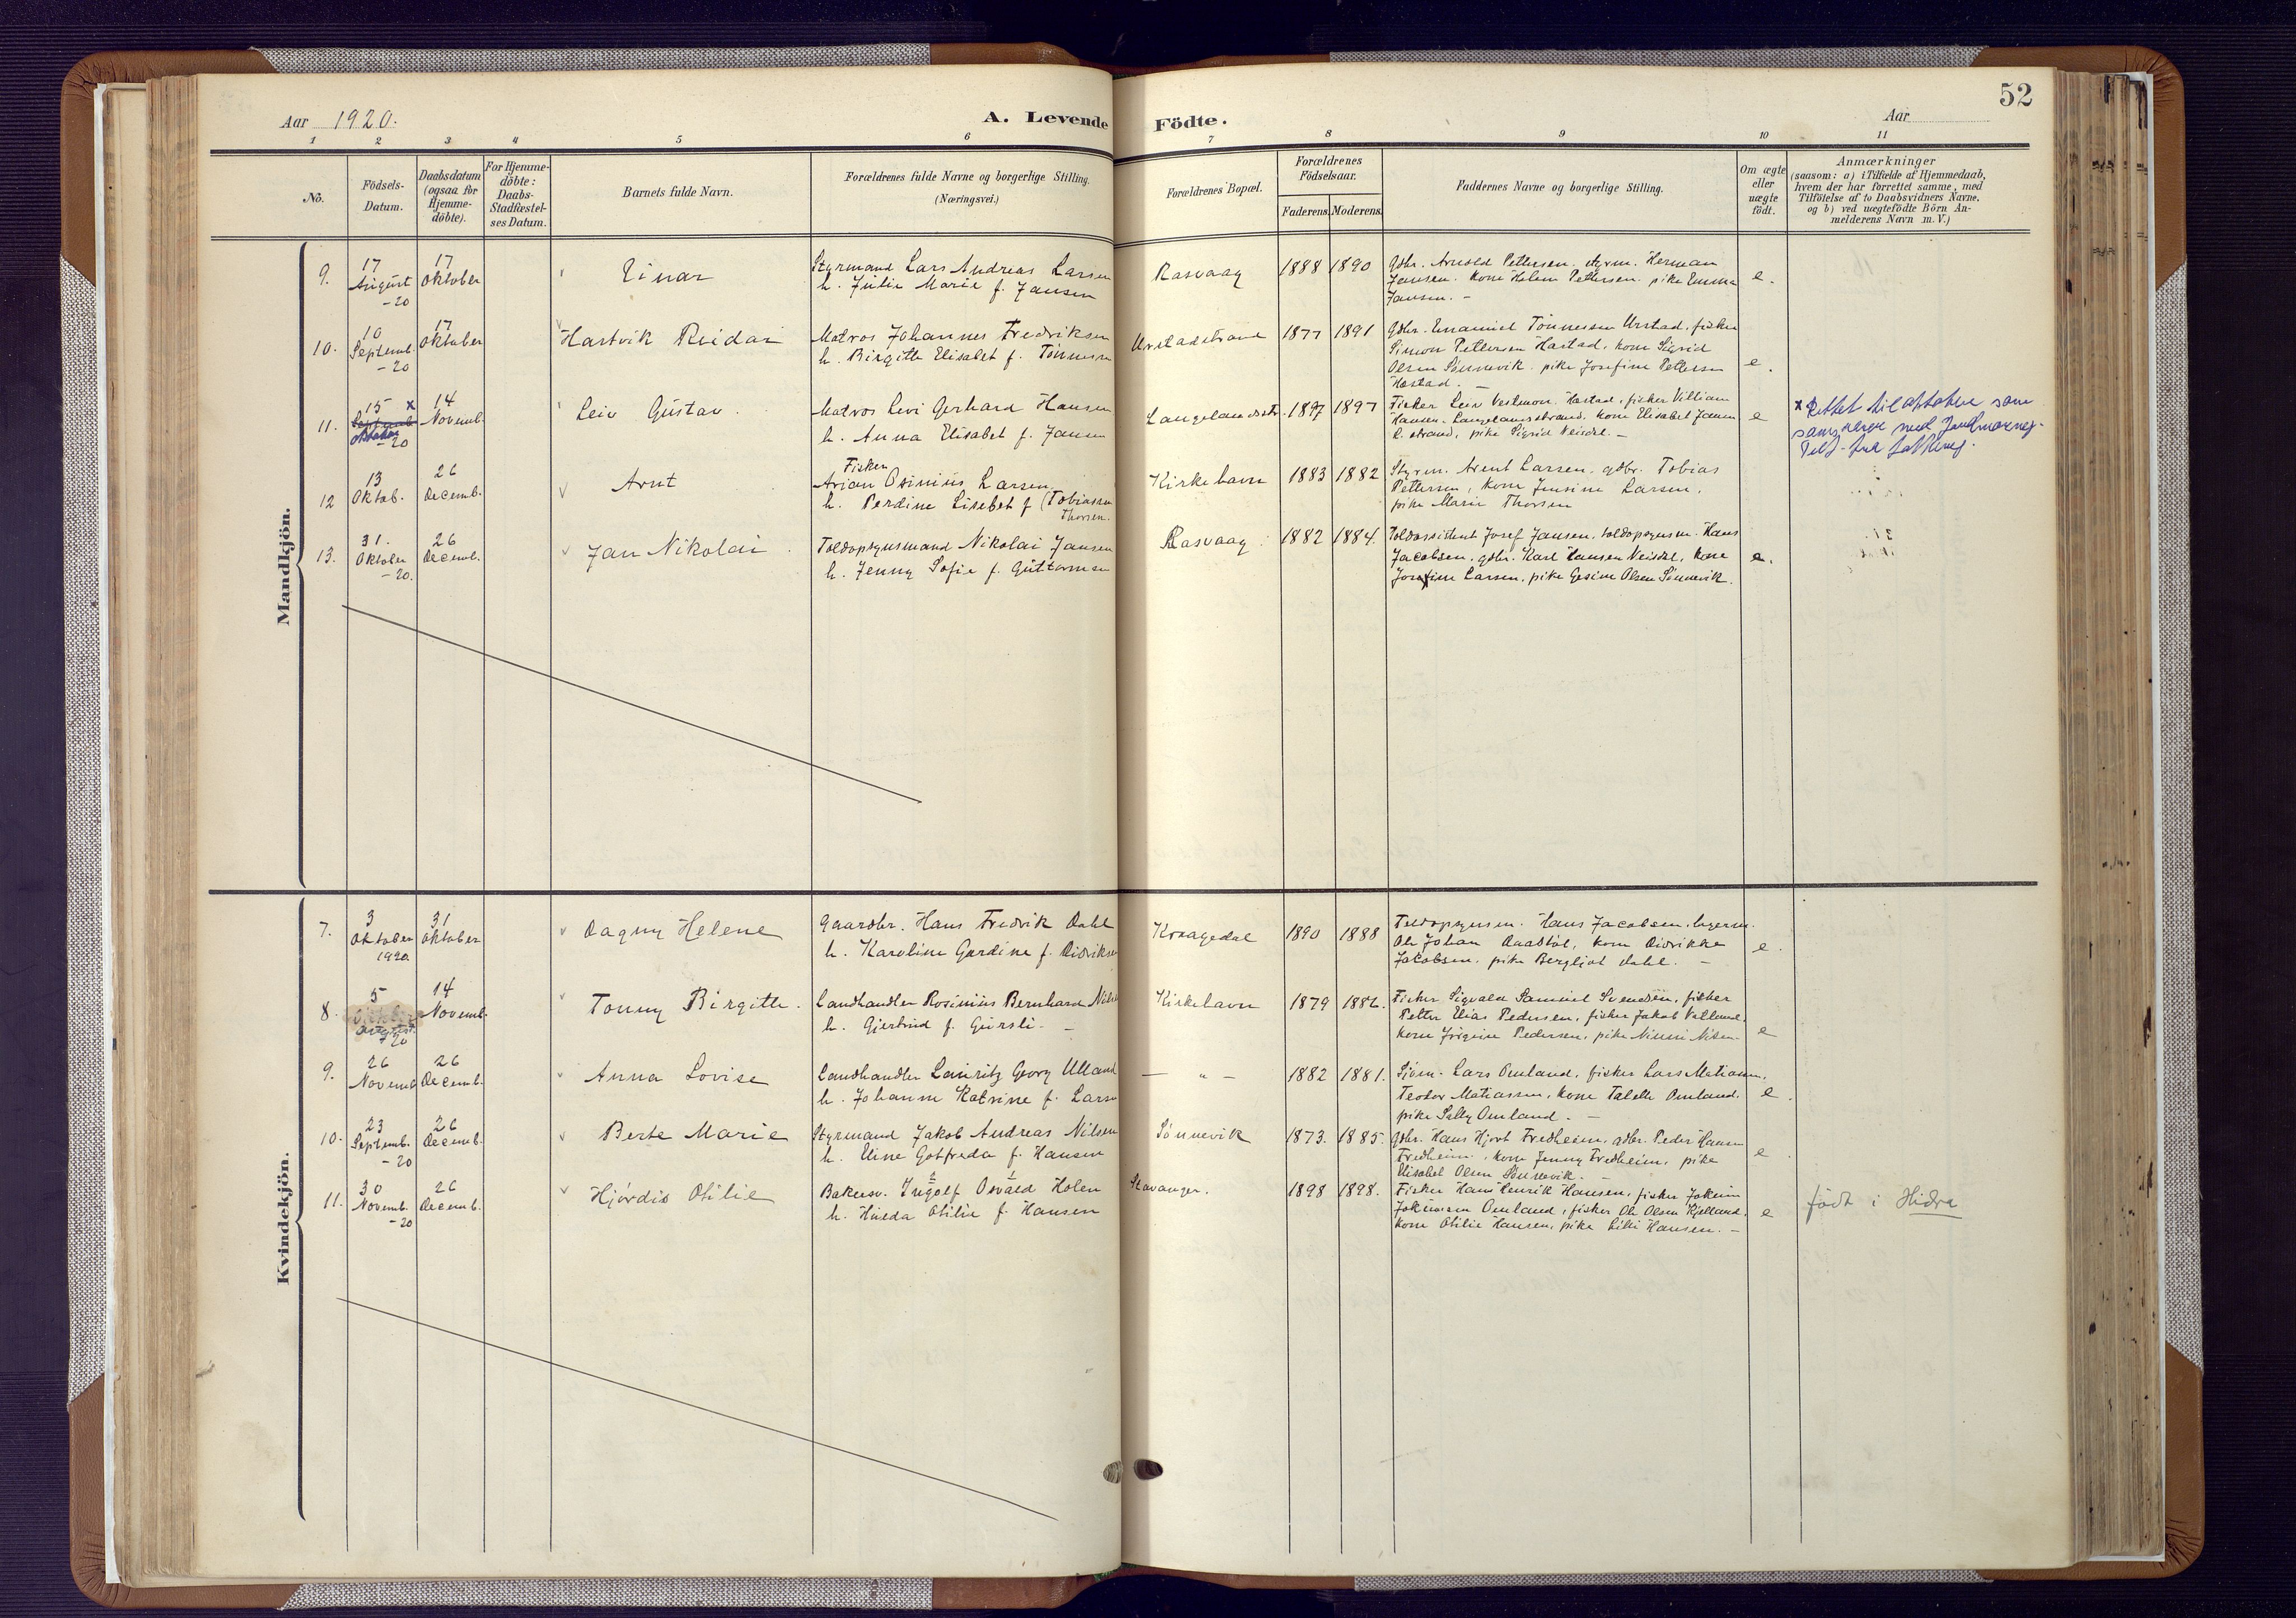 52
Aar 1920.
A. Levende Födte.
Aar
1 2 3 4 5 6 7 8 9 10 11
No.
Födsels-
Datum.
Daabsdatum
(ogsaa for
Hjemme-
döbte).
For Hjemme-
döbte:
Daabs-
Stadfæstel-
ses Datum.
Barnets fulde Navn.
Forældrenes fulde Navne og borgerlige Stilling.
(Næringsvei.)
Forældrenes Bopæl.
Forældrenes
Födselsaar.
Faderens. Moderens.
Faddernes Navne og borgerlige Stilling.
Om ægte
eller
uægte
födt.
Anmærkninger
(saasom: a) i Tilfælde af Hjemmedaab,
hvem der har forrettet samme, med
Tilföielse af to Daabsvidners Navne,
og b) ved uægtefödte Börn An-
melderens Navn m. V.)
Mandkjön.
9.
17
August
-20
17
Oktober
Einar
Styrmand Lars Andreas Larsen
h. Julie Marie f. Jansen
Rasvaag
1888 1890
Gdbr. Arnold Pettersen. styrm. Herman
Jansen. kone Helene Pettersen. pike Emma
Jansen. -
e.
10.
10
Septemb.
-20
17
Oktober
Hartvik Reidar
Matros Johannes Fredriksen
h. Birgitte Elisabet f. Tönnesen
Urstadstrand
1877 1891
Gdbr. Emanuel Tönnessen Urstad, fisker
Simon Pettersen Hastad, kone Sigrid
Olsen Sönnevik. pike Josefine Pettersen
Hastad. -
e.
11.
15 x
Septemb.
oktober
-20
14
Novemb.
Leiv Gustav.
Matros Levi Gerhard Hansen
h. Anna Elisabet f. Jansen
Langelandsstr.
1897 1897
Fisker Leiv Vestmon. Hastad, fisker Villiam
Hansen, Langelandsstrand, kone Elisabet Jansen
L. strand, pike Sigrid Veisdal. -
e
x Rettet til oktober som
12
13
Oktob.
26
Decemb.
Arnt
Fisker
Arian Osinius Larsen
h. Perdine Lisebet f (Tobiassen
Thorsen.
Kirkehavn
1883 1882
Styrm. Arent Larsen. gdbr. Tobias
Pettersen, kone Jensine Larsen.
pike Marie Thorsen
13.
31.
Oktober
-20.
26
Decemb.
Jan Nikolai
Toldopsynsmand Nikolai Jansen
h. Jenny Sofie f. Guttormsen
Rasvaag
1882 1884.
Toldassistent Josef Jansen, toldopsynsm. Hans
Jacobsen. gdbr. Karl Hansen Veisdal, kone
Josefine Larsen, pike Gesine Olsen Sönnevik.
e.
Kvindekjön.
7.
3
Oktober
1920
31
Oktober
Dagny Helene
Gaardbr. Hans Fredrik Dahl
h. Karoline Gardine f. Didriksen
Kraagedal
1890 1888
Toldopsynsm. Hans Jacobsen.
Ole Johan Daastöl, kone Didrikke
Jakobsen. pike Bergljot Dahl. -
e.
8.
5
August
20
14
Novemb.
Tonny Birgitte.
Landhandler Rosinius Bernhard Nilsen
h. Gjertrud f. Gursli. -
Kirkehavn
1879 1882.
Fisker Sigvald Samuel Svendsen, fisker
Petter Elias Pedersen, fisker Jakob Velland.
kone Jörgine Pedersen, pike Ninni Nilsen-
e
9.
26
Novemb
26
Decemb.
Anna Lovise
Landhandler Lauritz Georg Ulland
h. Johanne Katrine f. Larsen
— " —
1882 1881.
Sjöm. Lars Omland, fisker Lars Matiassen,
Teodor Matiassen, kone Talette Omland.
pike Selly Omland. -
e.
10.
23
Septemb.
-20
26
Decemb.
Berte Marie
Styrmand Jakob Andreas Nilsen
h. Eline Gotfreda f. Hansen
Sönnevik
1873. 1885.
gdbr. Hans Hjort Fredheim, gdbr. Peder Hansen
Fredheim, kone Jenny Fredheim, pike
Elisabet Olsen Sönnevik. -
e
11.
30
Novemb.
-20
26
Decemb.
Hjördis Otilie
Bakersv. Ingolf Osvald Holen
h. Hulda Otilie f. Hansen
Stavanger.
1898 1898.
Fisker Hans Henrik Hansen, fisker Jokum
Jokumsen Omland, fisker Ole Olsen Kjelland.
kone Otilie Hansen, pike Lilli Hansen. -
e
födt i Hidra